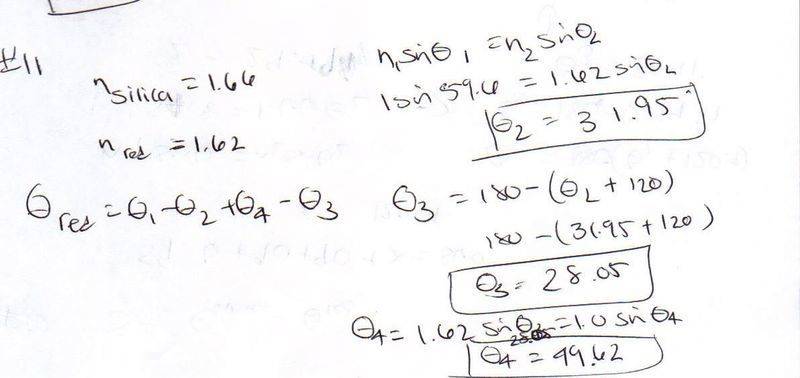 #11
n silica = 1.66
n red = 1.62
θ red = θ1 - θ2 + θ4 - θ3
n1 sinθ1 = n2 sinθ2
1 sin 59.6 = 1.62 sinθ2
θ2 = 31.95°
θ3 = 180 - (θ2 + 120)
180 - (31.95 + 120)
θ3 = 28.05
θ4 = 1.62 sinθ3 = 1.0 sinθ4
θ4 = 49.62